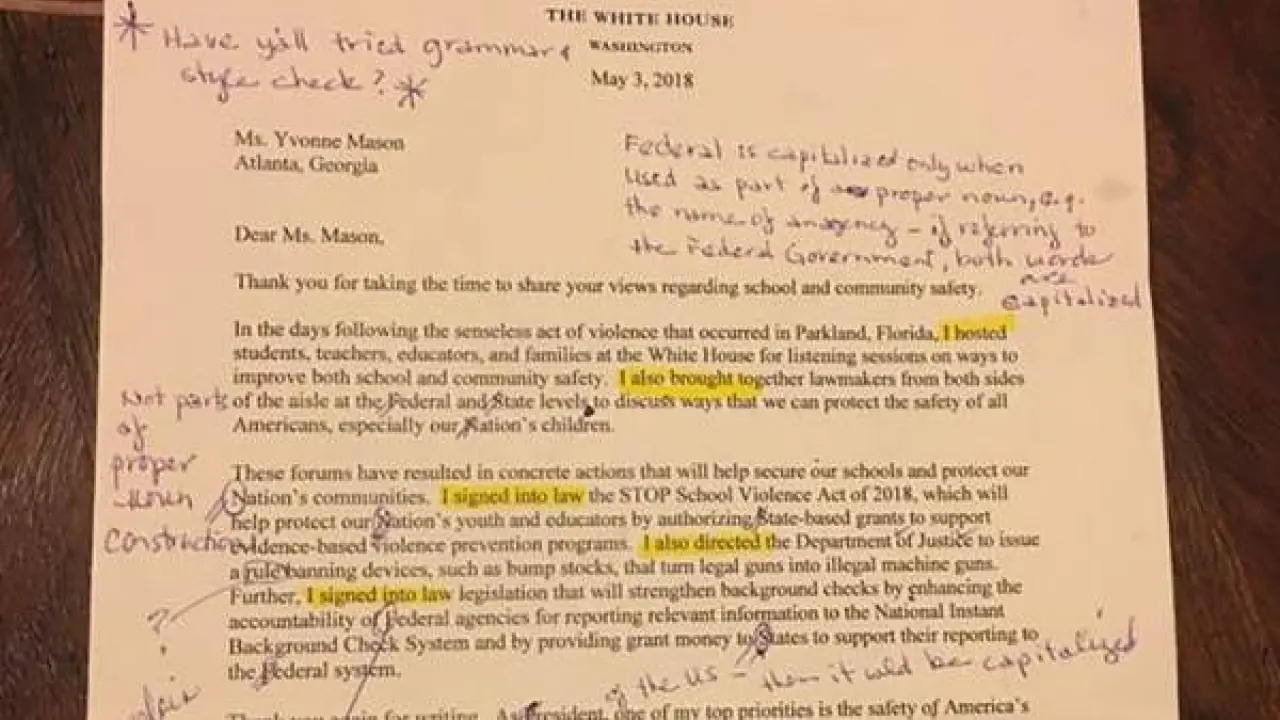 THE WHITE HOUSE
* Have y'all tried grammar &
WASHINGTON
style check? *
May 3, 2018
Ms. Yvonne Mason
Atlanta, Georgia
Federal is capitalized only when
used as part of proper noun, e.g.
the name of an agency – if referring to
the Federal Government, both words
are
capitalized
Dear Ms. Mason,
Thank you for taking the time to share your views regarding school and community safety.
In the days following the senseless act of violence that occurred in Parkland, Florida, I hosted
students, teachers, educators, and families at the White House for listening sessions on ways to
improve both school and community safety. I also brought together lawmakers from both sides
of the aisle at the Federal and State levels to discuss ways that we can protect the safety of all
Americans, especially our Nation's children.
Not parts
of
proper
noun
construction
These forums have resulted in concrete actions that will help secure our schools and protect our
Nation's communities. I signed into law the STOP School Violence Act of 2018, which will
help protect our Nation's youth and educators by authorizing State-based grants to support
evidence-based violence prevention programs. I also directed the Department of Justice to issue
a rule banning devices, such as bump stocks, that turn legal guns into illegal machine guns.
Further, I signed into law legislation that will strengthen background checks by enhancing the
accountability of Federal agencies for reporting relevant information to the National Instant
Background Check System and by providing grant money to States to support their reporting to
the Federal system.
?
of the US – then it would be capitalized
Thank you again for writing. As President, one of my top priorities is the safety of America's